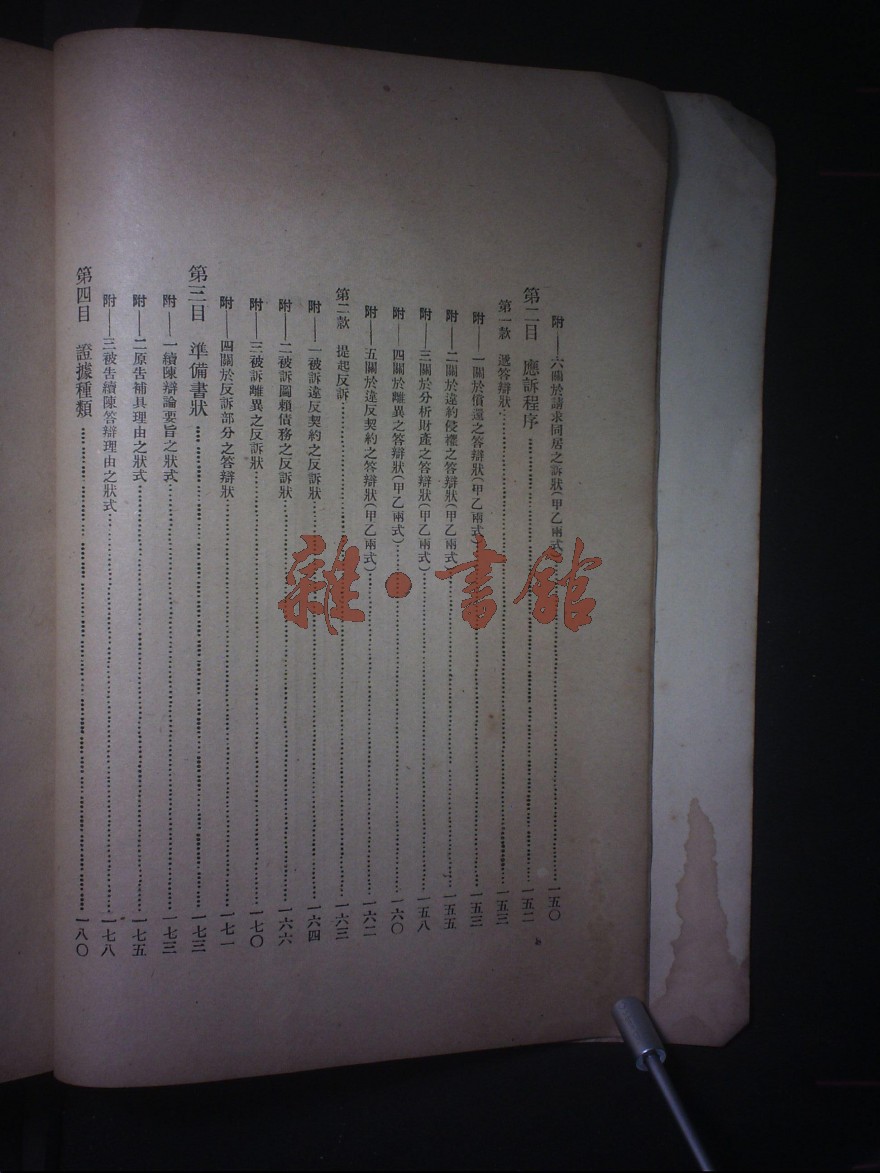 附——六關於請求同居之訴狀(甲乙兩式)……一五〇
第二目　應訴程序……一五二
第一款　遞答辯狀……一五三
附——一關於償還之答辯狀(甲乙兩式)……一五三
附——二關於違約侵權之答辯狀(甲乙兩式)……一五五
附——三關於分析財產之答辯狀(甲乙兩式)……一五八
附——四關於離異之答辯狀(甲乙兩式)……一六〇
附——五關於違反契約之答辯狀(甲乙兩式)……一六二
第二款　提起反訴……一六三
附——一被訴違反契約之反訴狀……一六四
附——二被訴圖賴債務之反訴狀……一六六
附——三被訴離異之反訴狀……一七〇
附——四關於反訴部分之答辯狀……一七一
第三目　準備書狀……一七三
附——一續陳辯論要旨之狀式……一七三
附——二原告補具理由之狀式……一七五
附——三被告續陳答辯理由之狀式……一七八
第四目　證據種類……一八〇
雜·書館